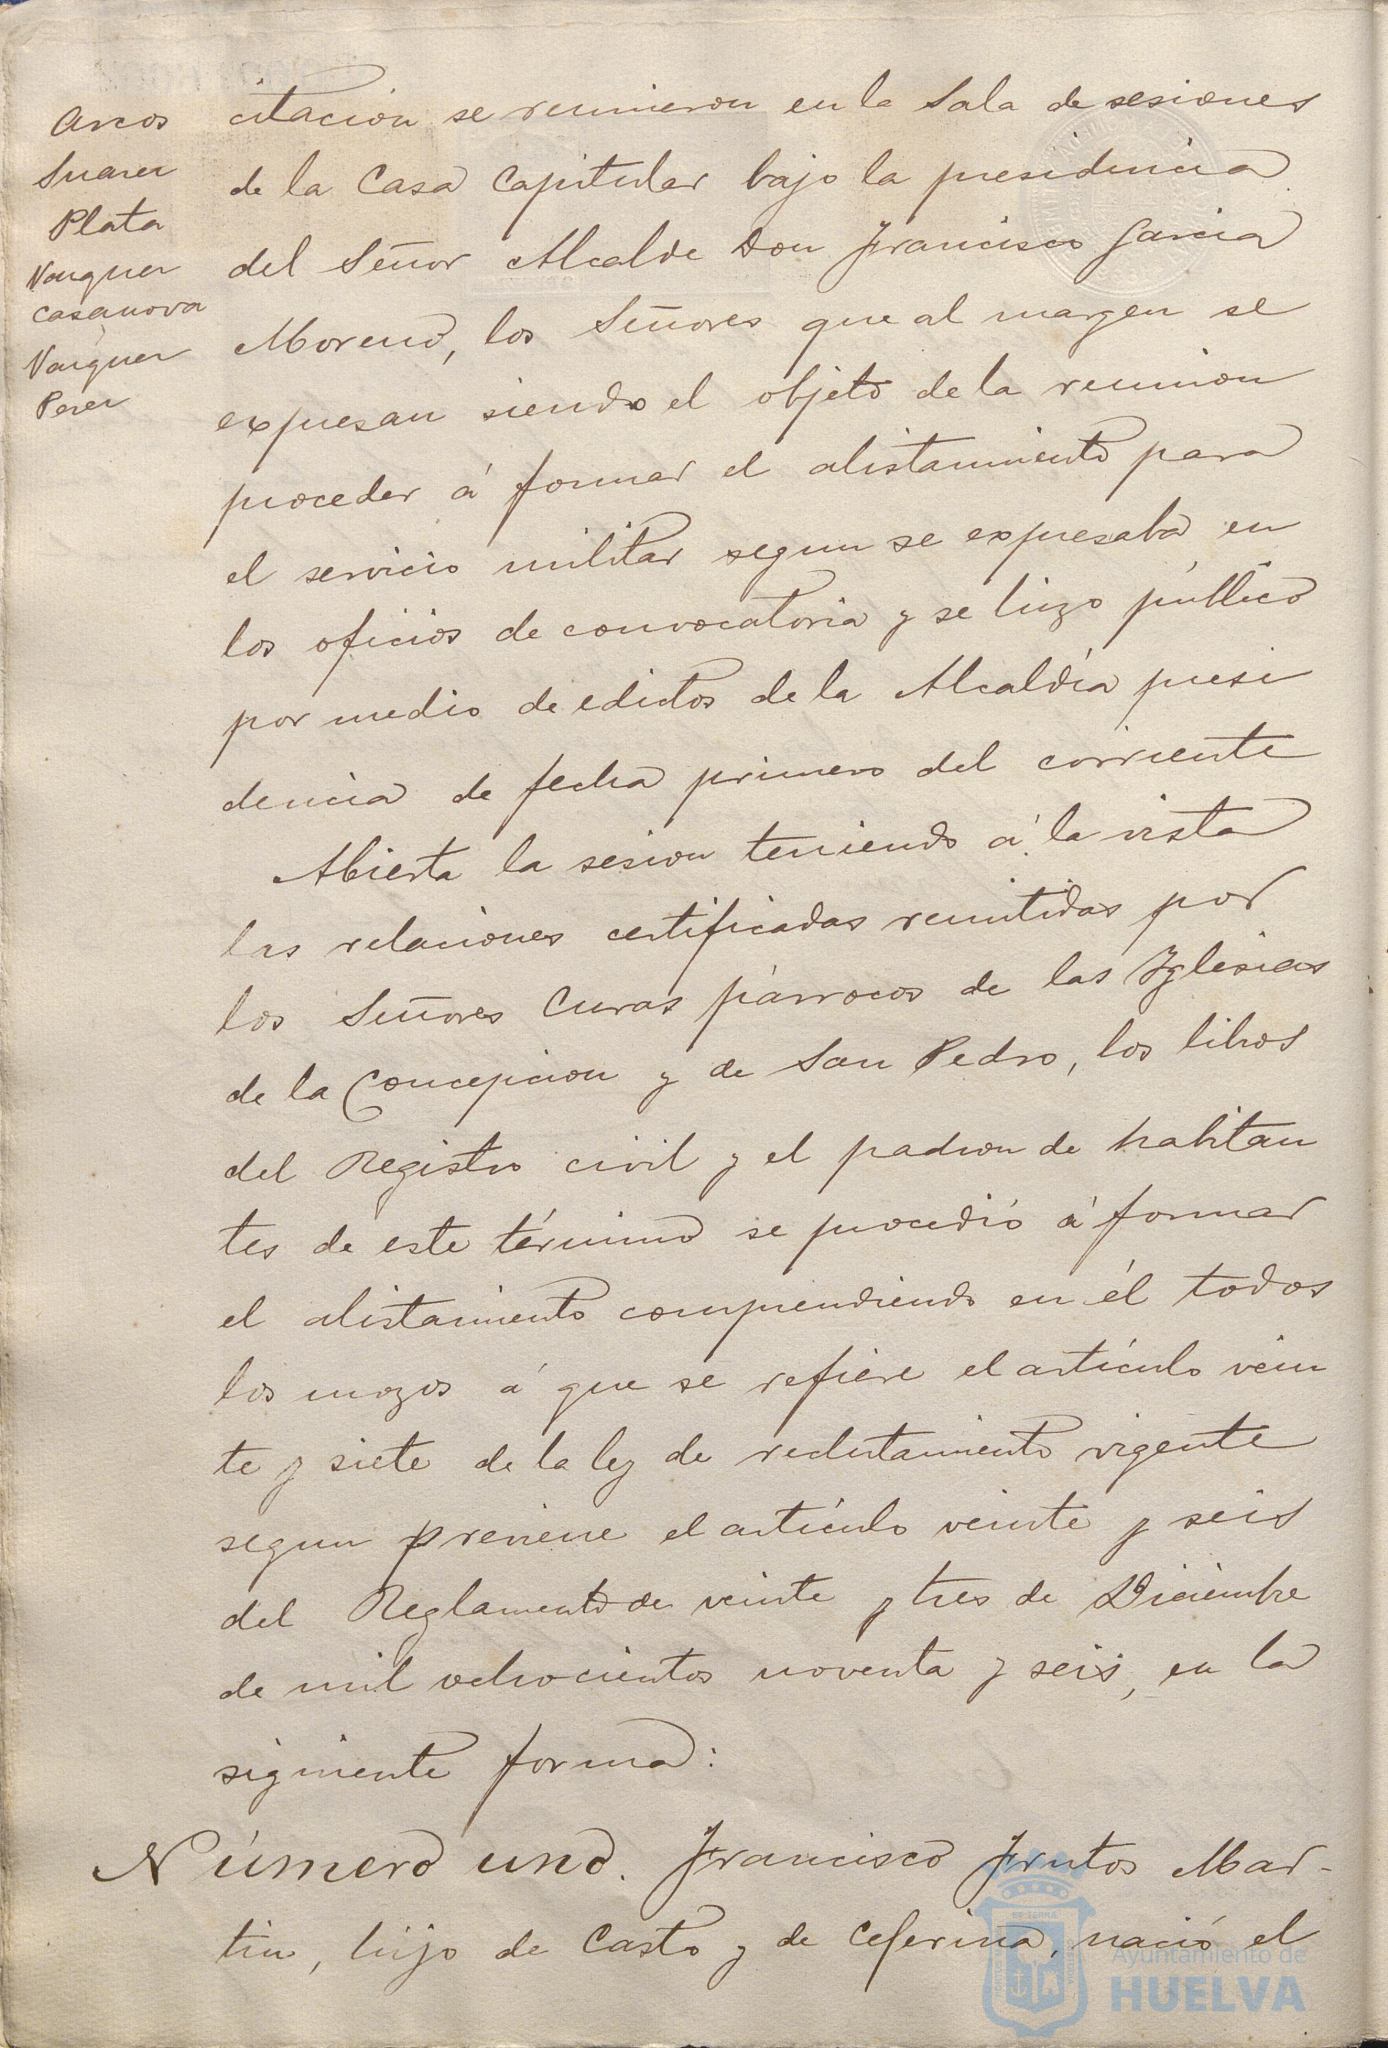 Arcos
Suarez
Plata
Vazquez
Casanova
Vazquez
Perez
citacion se reunieron en la Sala de sesiones
de la Casa Capitular bajo la presidencia
del Señor Alcalde Don Francisco Garcia
Moreno, los Señores que al margen se
expresan siendo el objeto de la reunion
proceder á formar el alistamiento para
el servicio militar segun se expresaba en
los oficios de convocatoria y se hizo público
por medio de edictos de la Alcaldía presi
dencia de fecha primero del corriente
Abierta la sesion teniendo á la vista
las relaciones certificadas remitidas por
los Señores Curas párrocos de las Yglesias
de la Concepcion y de San Pedro, los libros
del Registro civil y el padron de habitan
tes de este término se procedió á formar
el alistamiento comprendiendo en él todos
los mozos á que se refiere el artículo vein
te y siete de la ley de reclutamiento vigente
segun previene el artículo veinte y seis
del Reglamento de veinte y tres de Diciembre
de mil ochocientos noventa y seis, en la
siguiente forma:
Número uno. Francisco Frutos Mar-
tin, hijo de Casto y de Ceferina, nació el
Ayuntamiento de
HUELVA